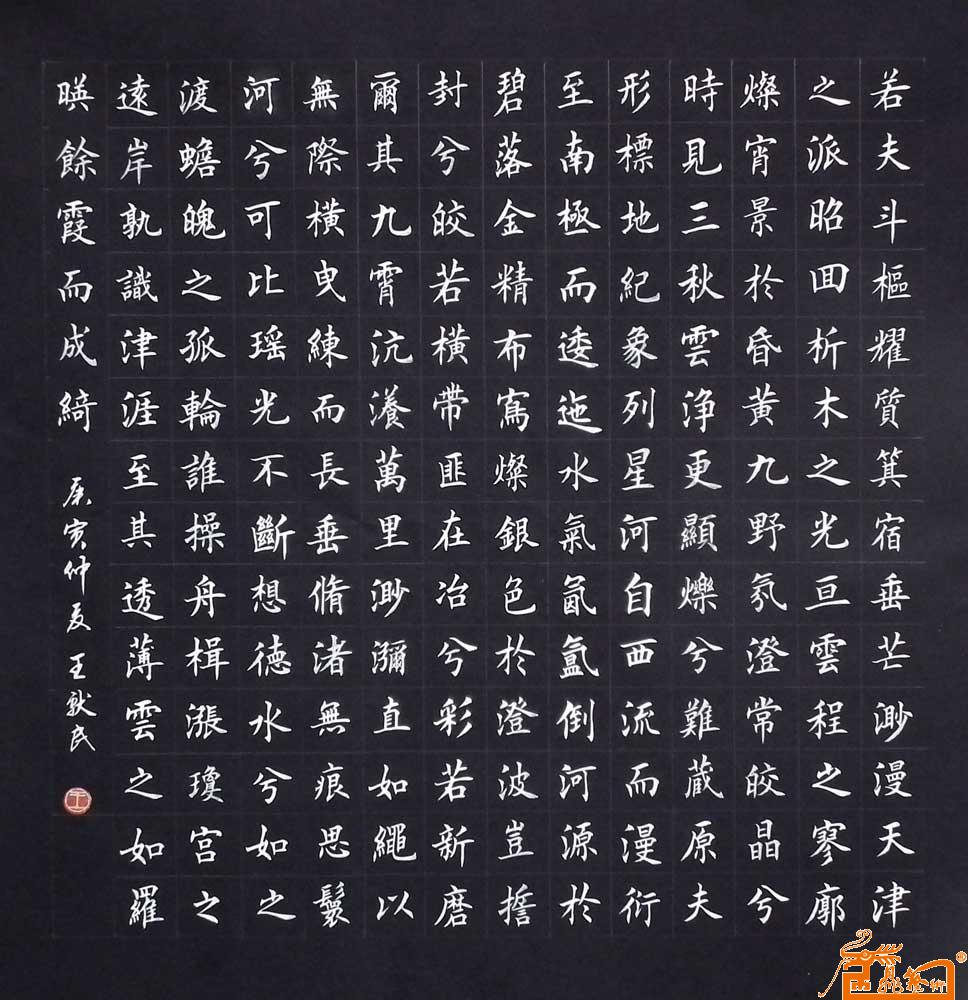 若夫斗樞耀質箕宿垂芒渺漫天津
之派昭回析木之光亘雲程之寥廓
燦宵景於昏黄九野氛澄常皎晶兮
時見三秋雲浄更顯爍兮難蔵原夫
形標地紀象列星河自西流而漫衍
至南極而逶迤水氣氤氳倒河源於
碧落金精布寫燦銀色於澄波豈擔
封兮皎若横帶匪在冶兮彩若新磨
爾其九霄沆瀁萬里渺瀰直如繩以
無際横曳練而長垂脩渚無痕思鬟
河兮可比瑶光不斷想德水兮如之
渡蟾魄之孤輪誰操舟楫漲瓊宫之
遠岸孰識津涯至其透薄雲之如羅
暎餘霞而成綺
庚寅仲夏 王獻民